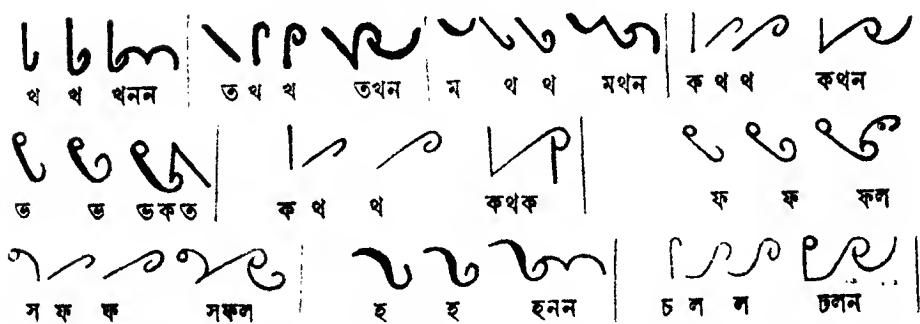 থ থ থনন ত থ থ তথন ম থ থ মথন ক থ থ কথন
ভ ভ ভকত ক থ থ কথক ফ ফ ফল
স ফ ফ সফল হ হ হনন চ ল ল চলন